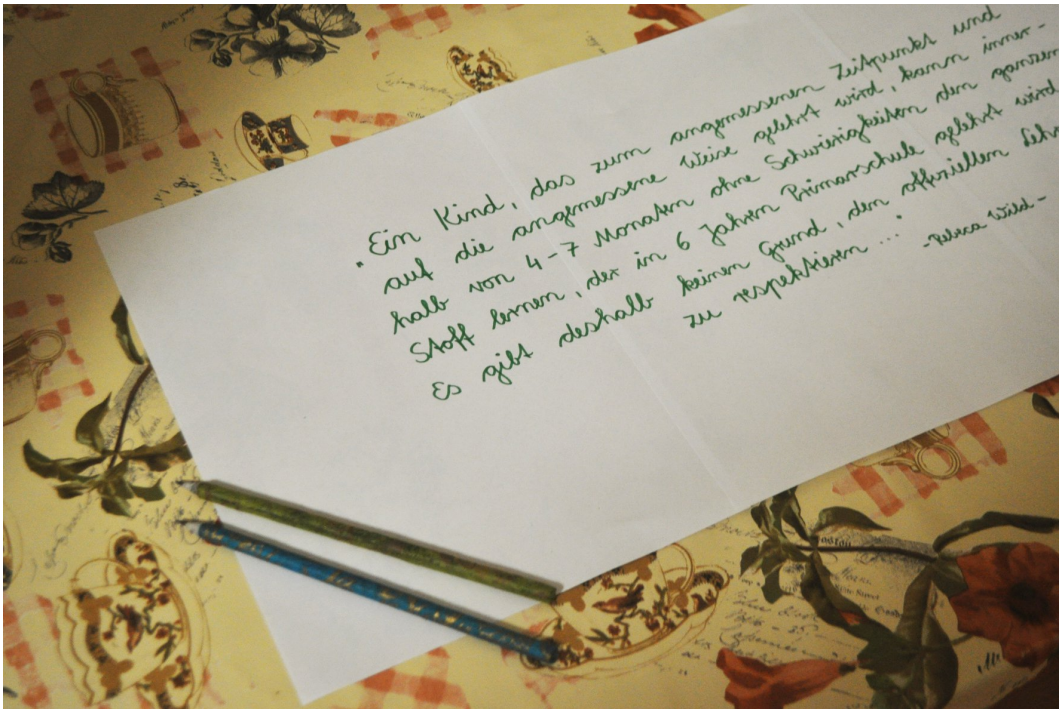 "Ein Kind, das zum angemessenen Zeitpunkt und
auf die angemessene Weise gelehrt wird, kann inner-
halb von 4-7 Monaten ohne Schwierigkeiten den ganzen
Stoff lernen, der in 6 Jahren Primarschule gelehrt wird.
Es gibt deshalb keinen Grund, den offiziellen
zu respektieren ..."
-Rebeca Wild-